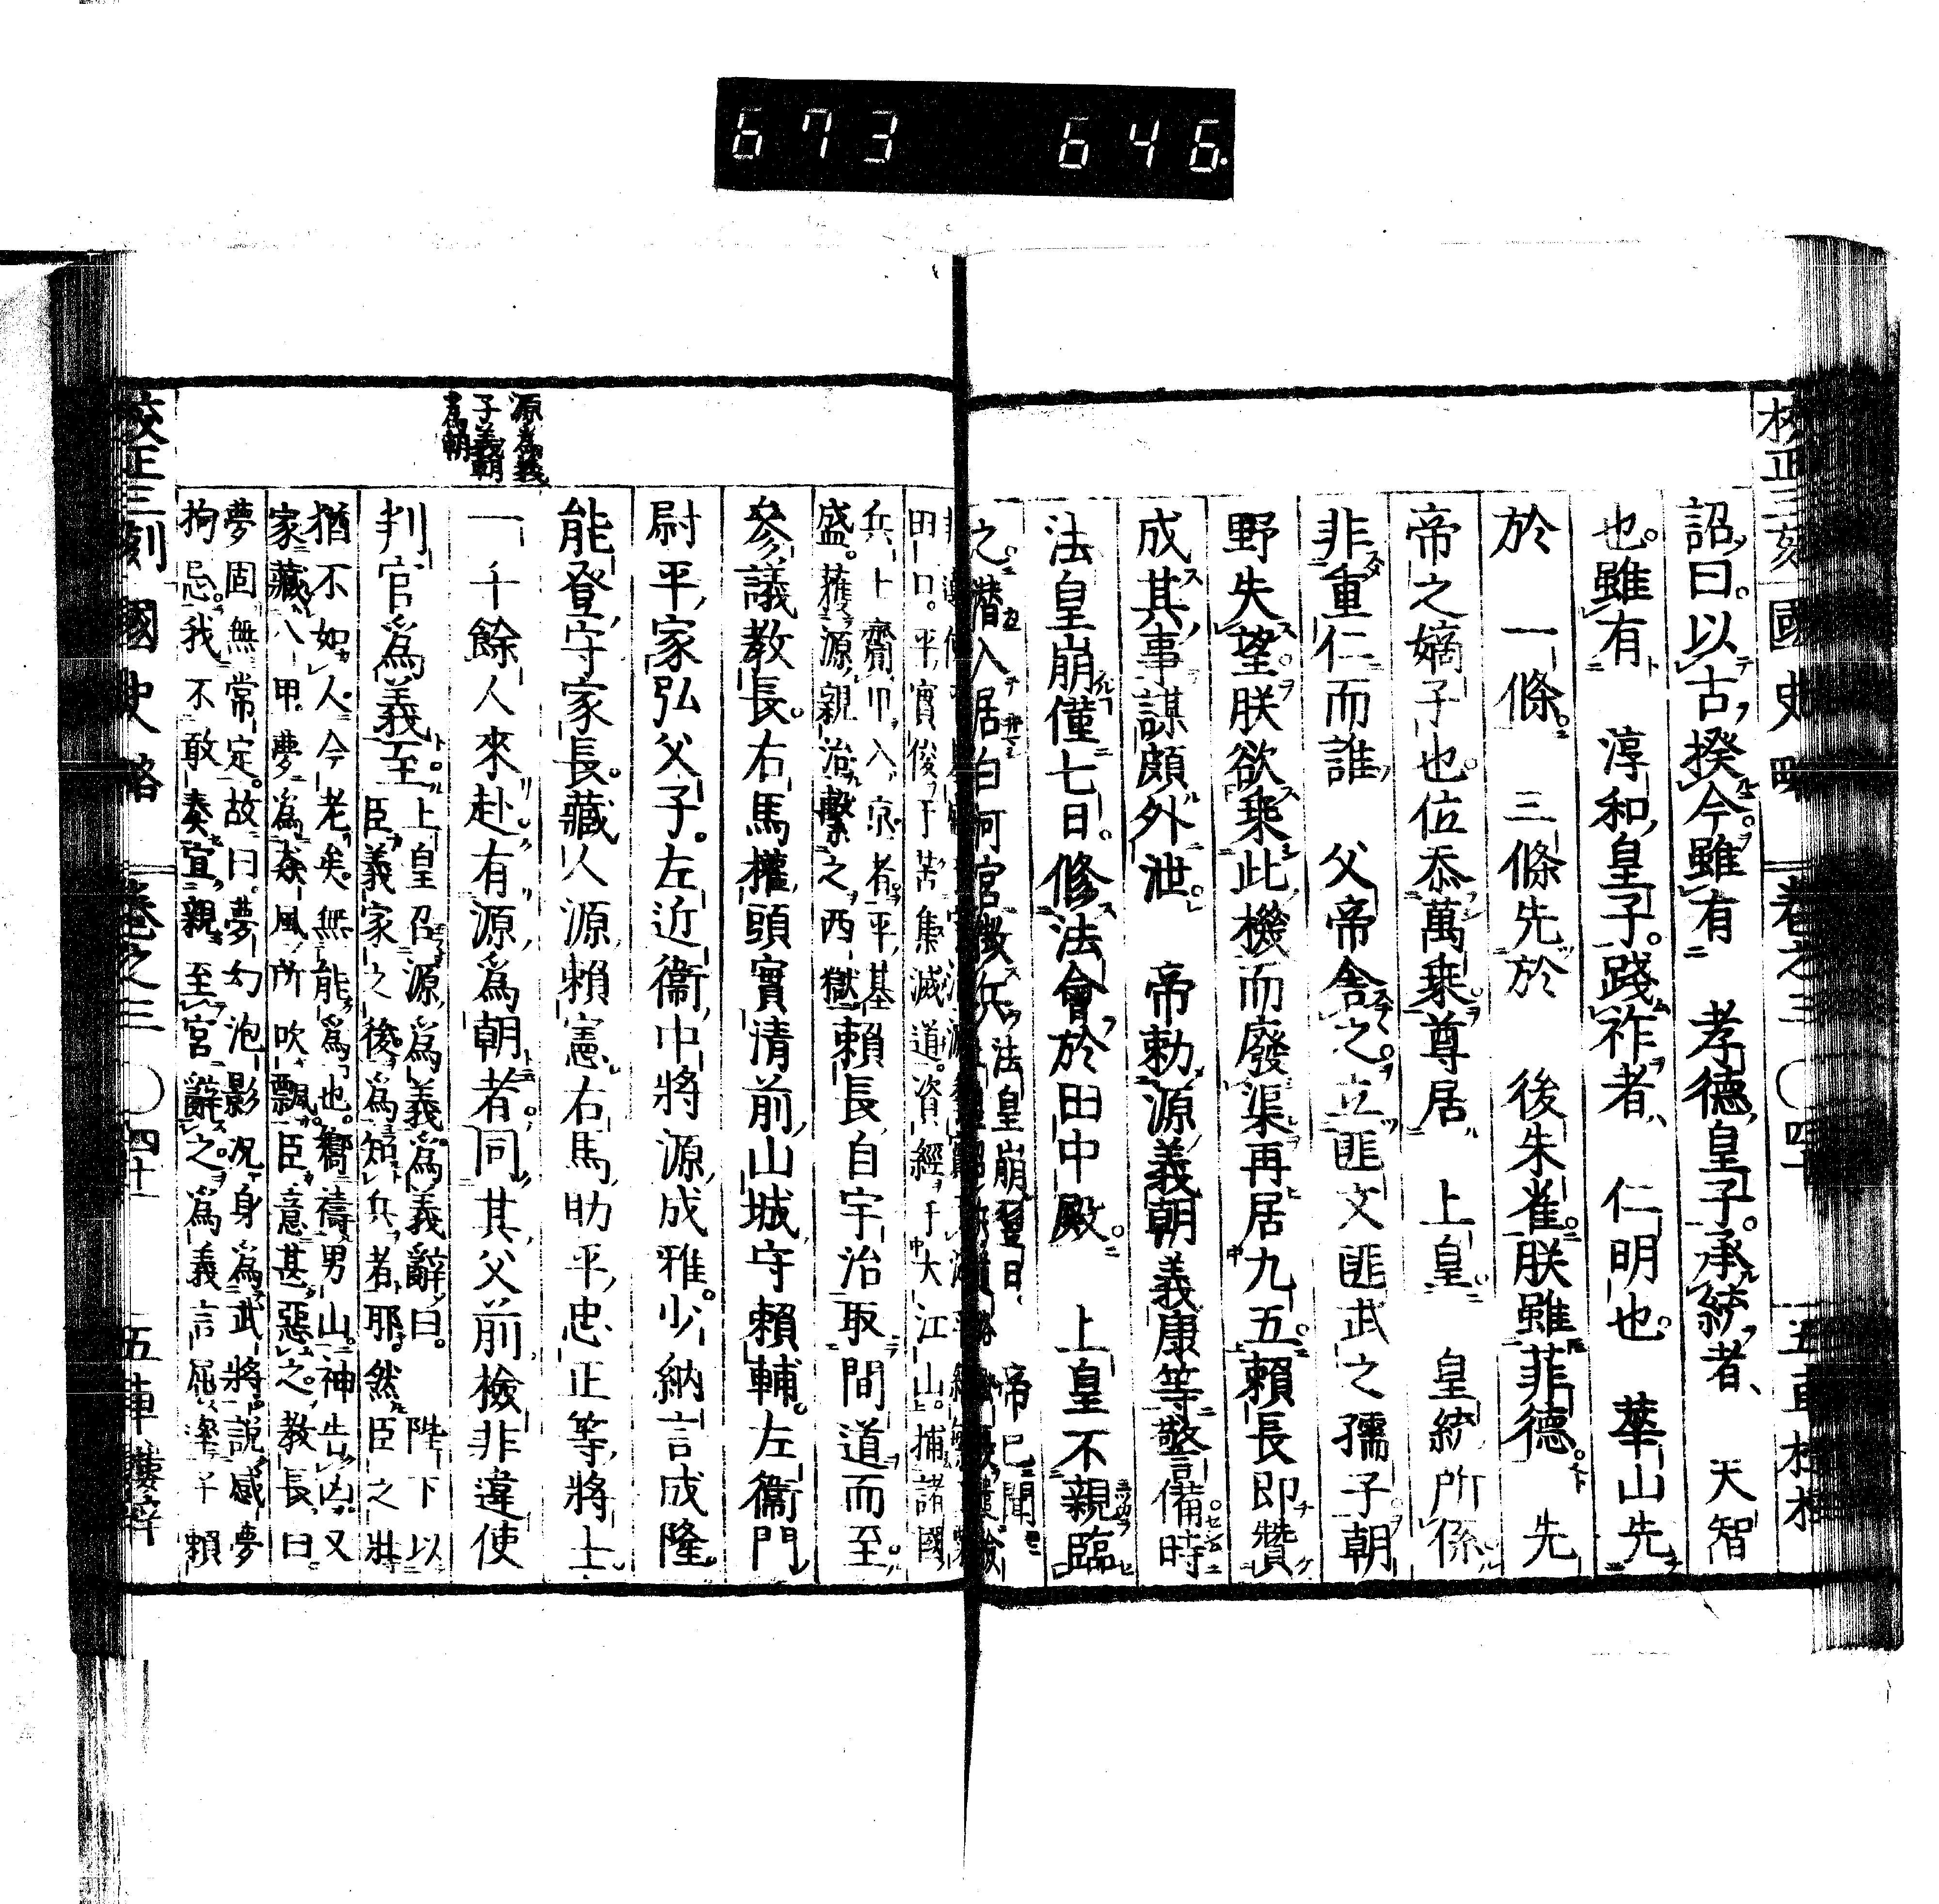 673 646.
校正三刻 國史略 卷之三 〇四十 五車樓梓
詔曰。以古揆今。雖有 孝德皇子。承統者、天智
也。雖有 淳和皇子。踐祚者、仁明也。華山先
於 一條。三條先於 後朱雀。朕雖菲德。先
帝之嫡子也。位忝萬乘。尊居 上皇。皇統所係。
非重仁而誰 父帝舍之。立匪文匪武之孺子。朝
野失望。朕欲乘此機而廢渠再居九五。賴長即贊
成其事。謀頗外泄。 帝勅源義朝義康等警備。時
法皇崩僅七日。修法會於田中殿。 上皇不親臨
之。潛入居白河宮徵兵。法皇崩翌日、
帝已聞
田口。平實俊于 集滅道。資經于大江山。捕諸國
兵上齋 入京者。平基
盛。獲源親治繫之西獄。賴長自宇治取間道而至。
參議教長。右馬權頭實清前山城守賴輔。左衞門
尉平家弘父子。左近衞中將源成雅。少納言成隆。
能登守家長。藏人源賴憲。右馬助平忠正等。將士
一千餘人來赴。有源爲朝者。同其父前檢非違使
判官爲義至。上皇召源爲義。爲義辭曰。陛下以
臣義家之後。爲知兵者耶。然臣之壯
猶不如人。今老矣。無能爲也。嚮禱男山。神告凶。又
家藏八甲。夢爲猋風所吹飄。臣意甚惡之。教長曰。
夢固無常定。故曰夢幻泡影。況身爲武將說感夢
拘忌。我不敢奏。宜親至宮辭之。爲義言屈 賴
源爲義
子義朝
爲朝
校正三刻 國史略 卷之三 〇四十 五車樓梓